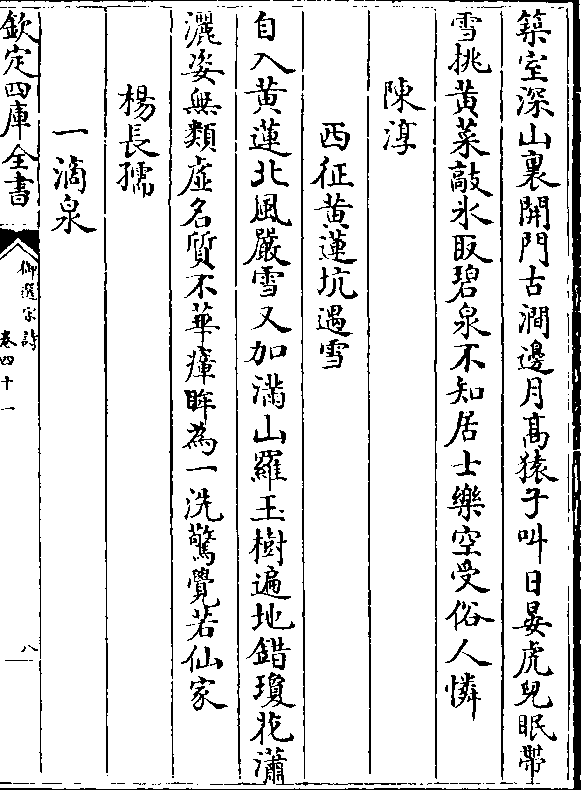 築室深山裏開門古澗邊月髙猿子叫日晏虎兒眠帶
雪挑黄菜敲氷取碧泉不知居士樂空受俗人憐
陳淳
西征黄蓮坑遇雪
自入黄蓮北風嚴雪又加滿山羅玉樹遍地錯瓊花瀟
灑姿無類虚名質不華瘴眸為一洗驚覺若仙家
楊長孺
一滴泉
欽定四庫全書
御選宋詩
卷四十一
八